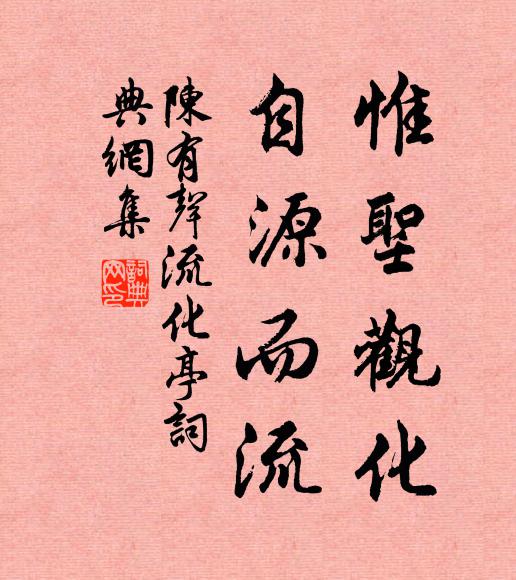 惟聖觀化
自源而流
陳有聲流化亭詞
典網集
詞典
网印